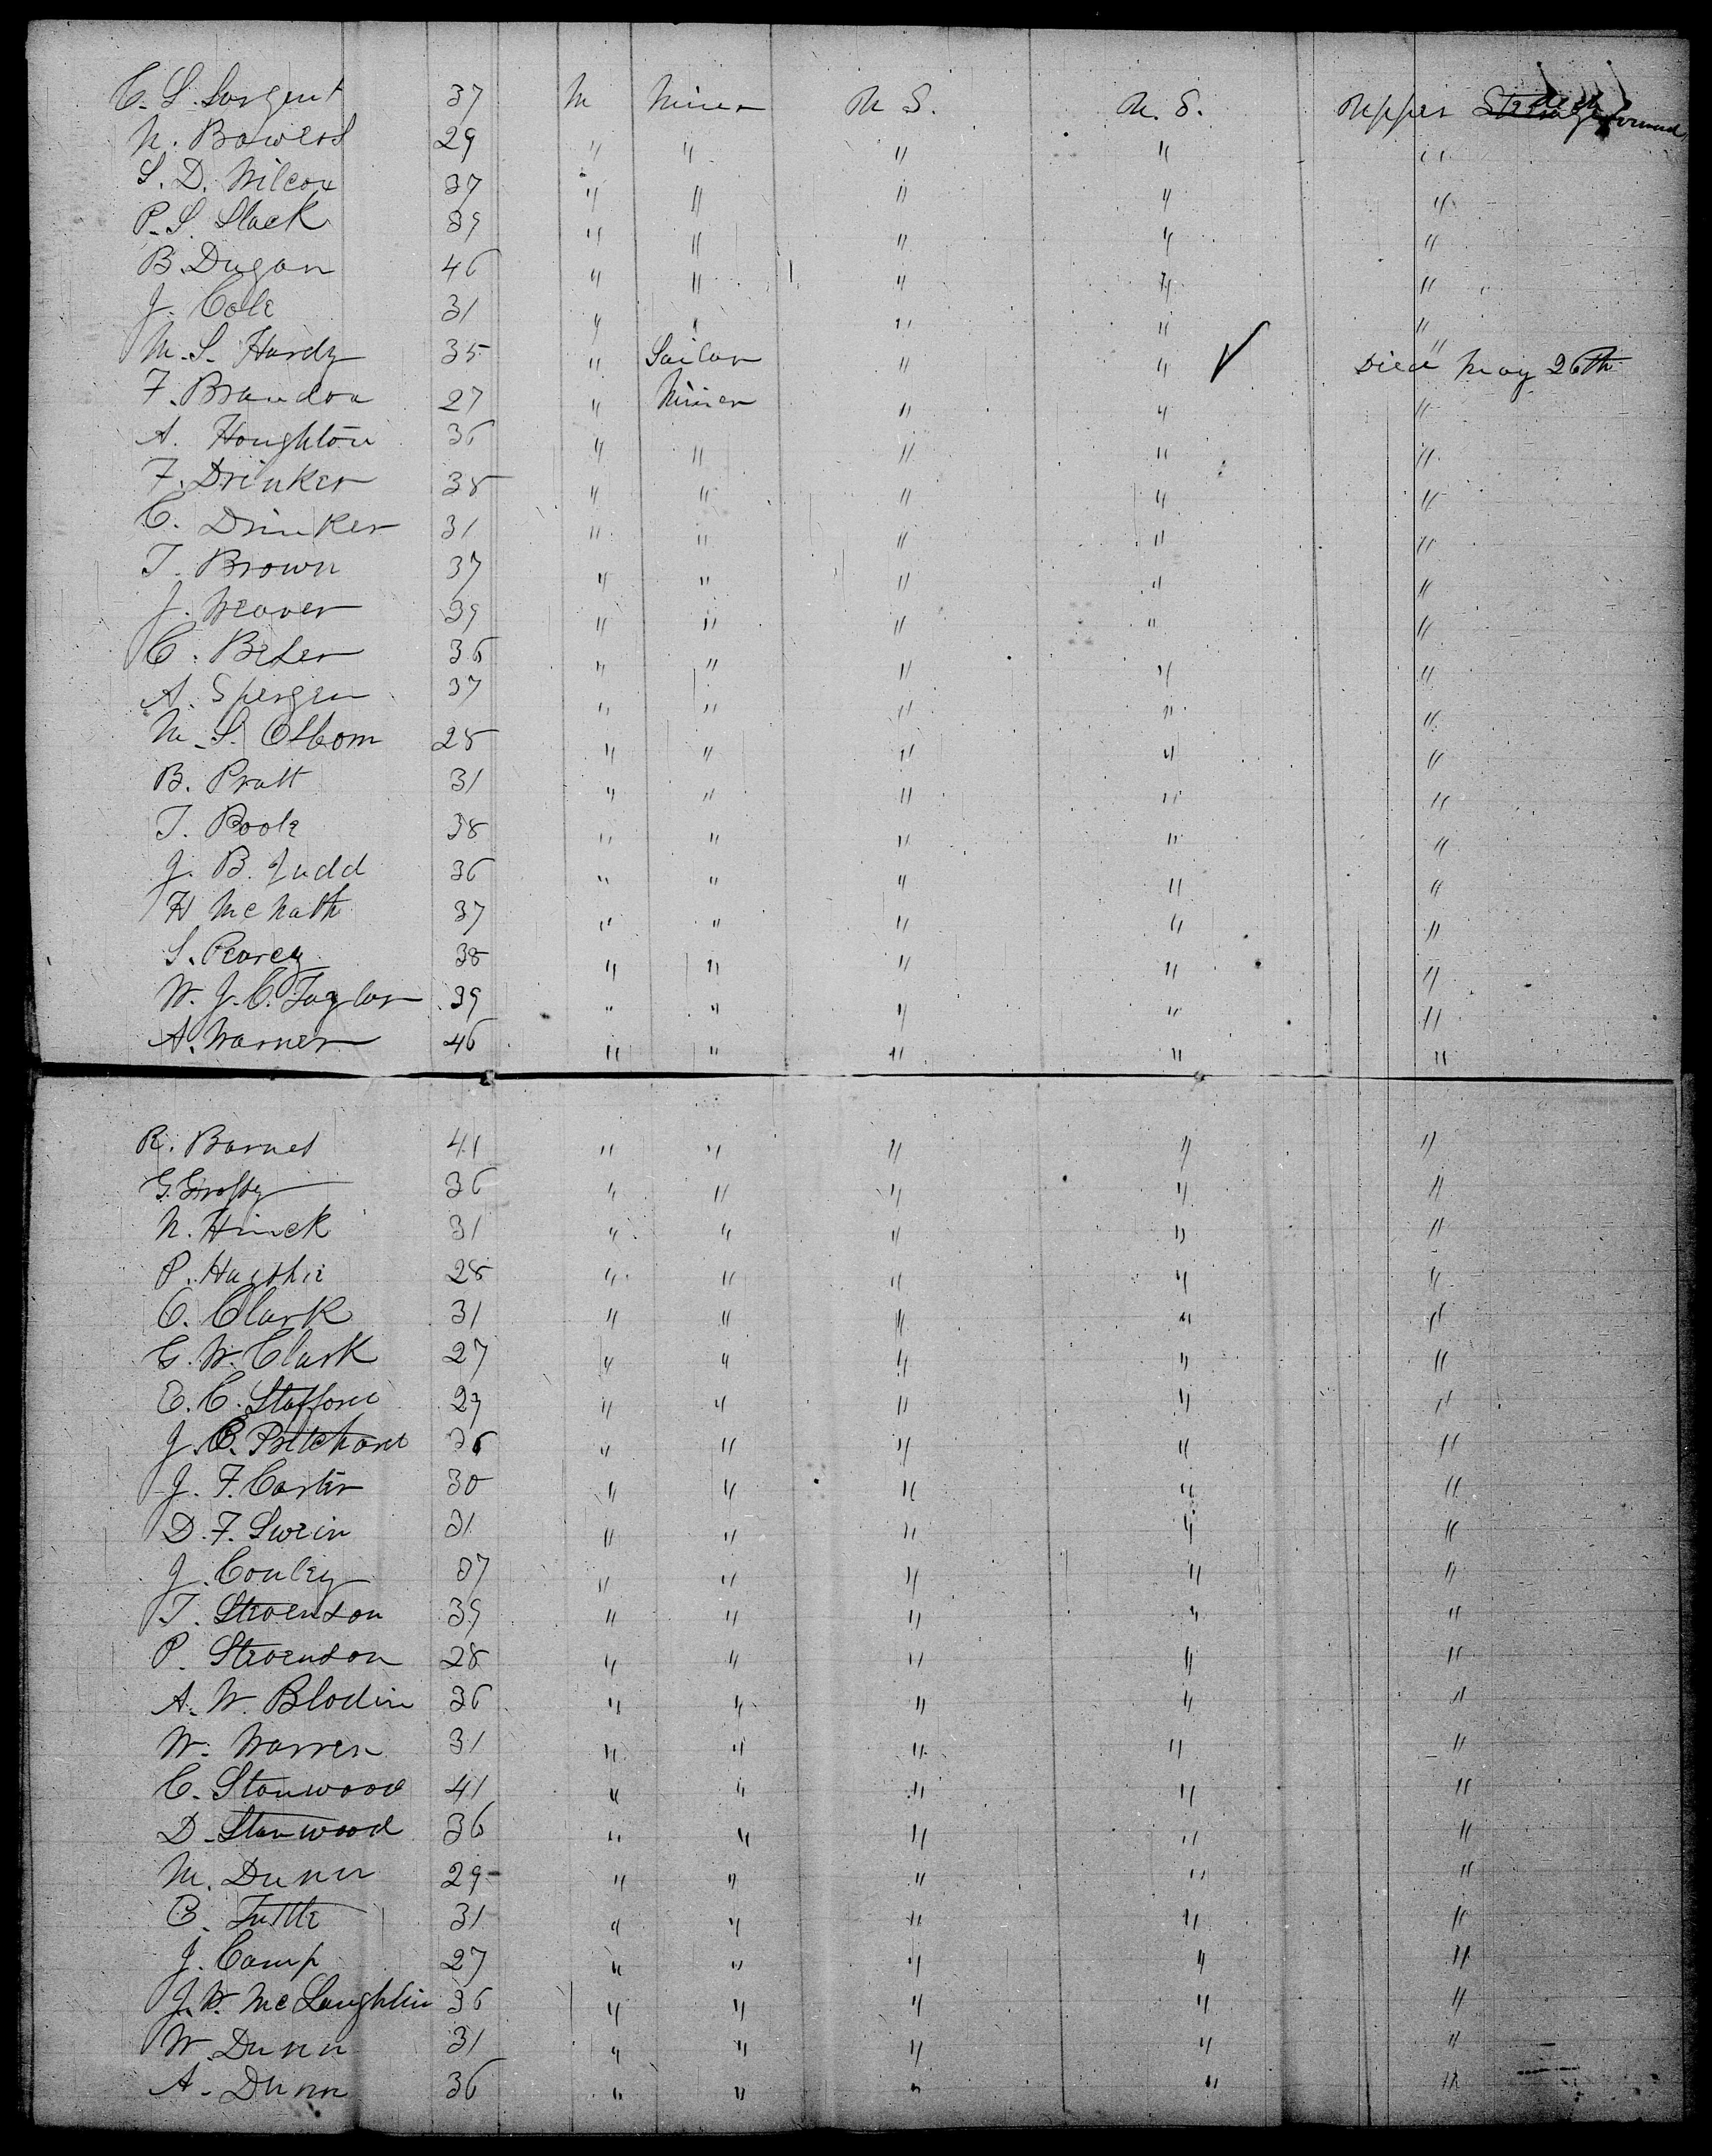 C. S. Sargent 37 M Miner U S. U. S. Upper Steerage deck forward
N. Bowers 29 " " " " "
S. D. Wilcox 37 " " " " "
P. S. Slack 39 " " " " "
B. Dugan 46 " " " " "
J. Cole 31 " " " " "
M. S. Hardy 35 " Sailor " " " Died May 26th
F. Brandon 27 " Miner " " "
A. Houghton 36 " " " " "
F. Drinker 38 " " " " "
C. Drinker 31 " " " " "
T. Brown 37 " " " " "
J. Weaver 39 " " " " "
C. Beser 36 " " " " "
A. Spergen 37 " " " " "
M. S. Osborn 28 " " " " "
B. Pratt 31 " " " " "
T. Pool 38 " " " " "
J. B. Judd 36 " " " " "
H McNath 37 " " " " "
S. Pearcy 38 " " " " "
W. J. C. Taylor 39 " " " " "
A. Warner 46 " " " " "
R. Barnes 41 " " " " "
G. 36 " " " " "
N. Hinck 31 " " " " "
P. 28 " " " " "
C. Clark 31 " " " " "
G. W. Clark 27 " " " " "
E. C. Stafford 29 " " " " "
J. C. Pritchard 36 " " " " "
J. F. Carter 30 " " " " "
D. F. Swein 31 " " " " "
J. Conley 37 " " " " "
T. Stevenson 39 " " " " "
P. Stevenson 28 " " " " "
A. W. Blodin 36 " " " " "
W. Warren 31 " " " " "
C. Stanwood 41 " " " " "
D. Stanwood 36 " " " " "
M. Dunn 29 " " " " "
B. Tuttle 31 " " " " "
J. Camp 27 " " " " "
J. W. McLaughlin 36 " " " " "
W. Dunn 31 " " " " "
A. Dunn 36 " " " " "